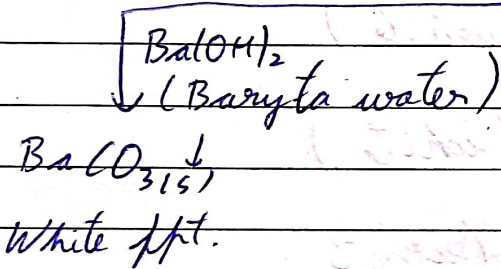 Ba(OH)₂
(Baryta water)
BaCO₃(s)↓
White ppt.